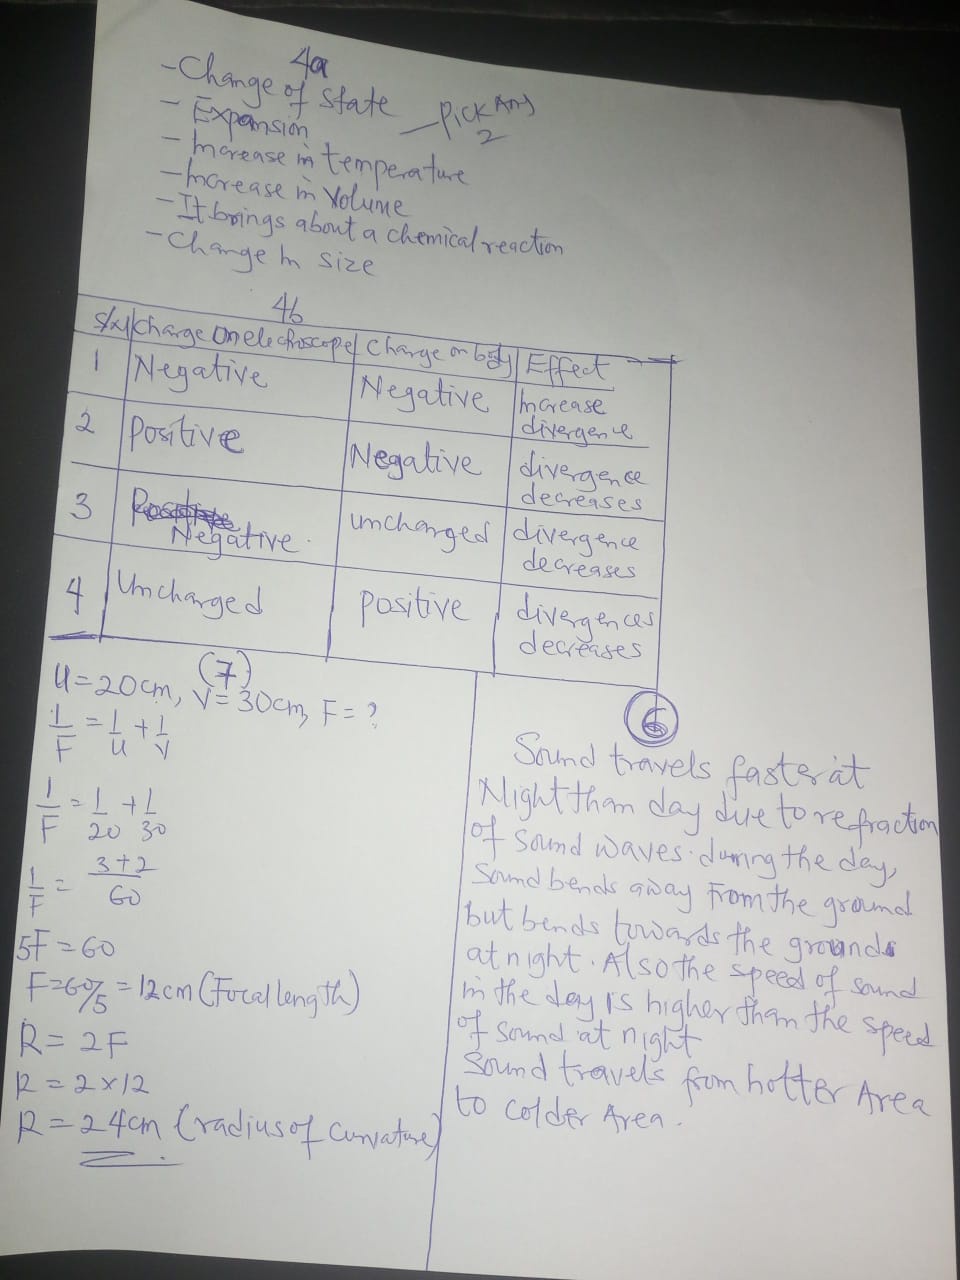 4a
- Change of state
- Expansion
- Pick Any
2
- Increase in temperature
- Increase in Volume
- It brings about a chemical reaction
- Change in size
4b
S/N Charge on electroscope Charge on body Effect
1 Negative Negative Increase divergence
2 Positive Negative divergence decreases
3 Negative uncharged divergence decreases
4 Uncharged positive divergences decreases
(7)
U=20cm, V=30cm, F=?
1/F = 1/U + 1/V
1/F = 1/20 + 1/30
1/F = 3+2/60
5F = 60
F=60/5 = 12cm (Focal length)
R = 2F
R = 2x12
R = 24cm (radius of Curvature)
6
Sound travels faster at
Night than day due to refraction
of sound waves. during the day,
Sound bends away From the ground
but bends towards the grounds
at night. Also the speed of sound
in the day is higher than the speed
of sound at night
Sound travels from hotter Area
to colder Area.